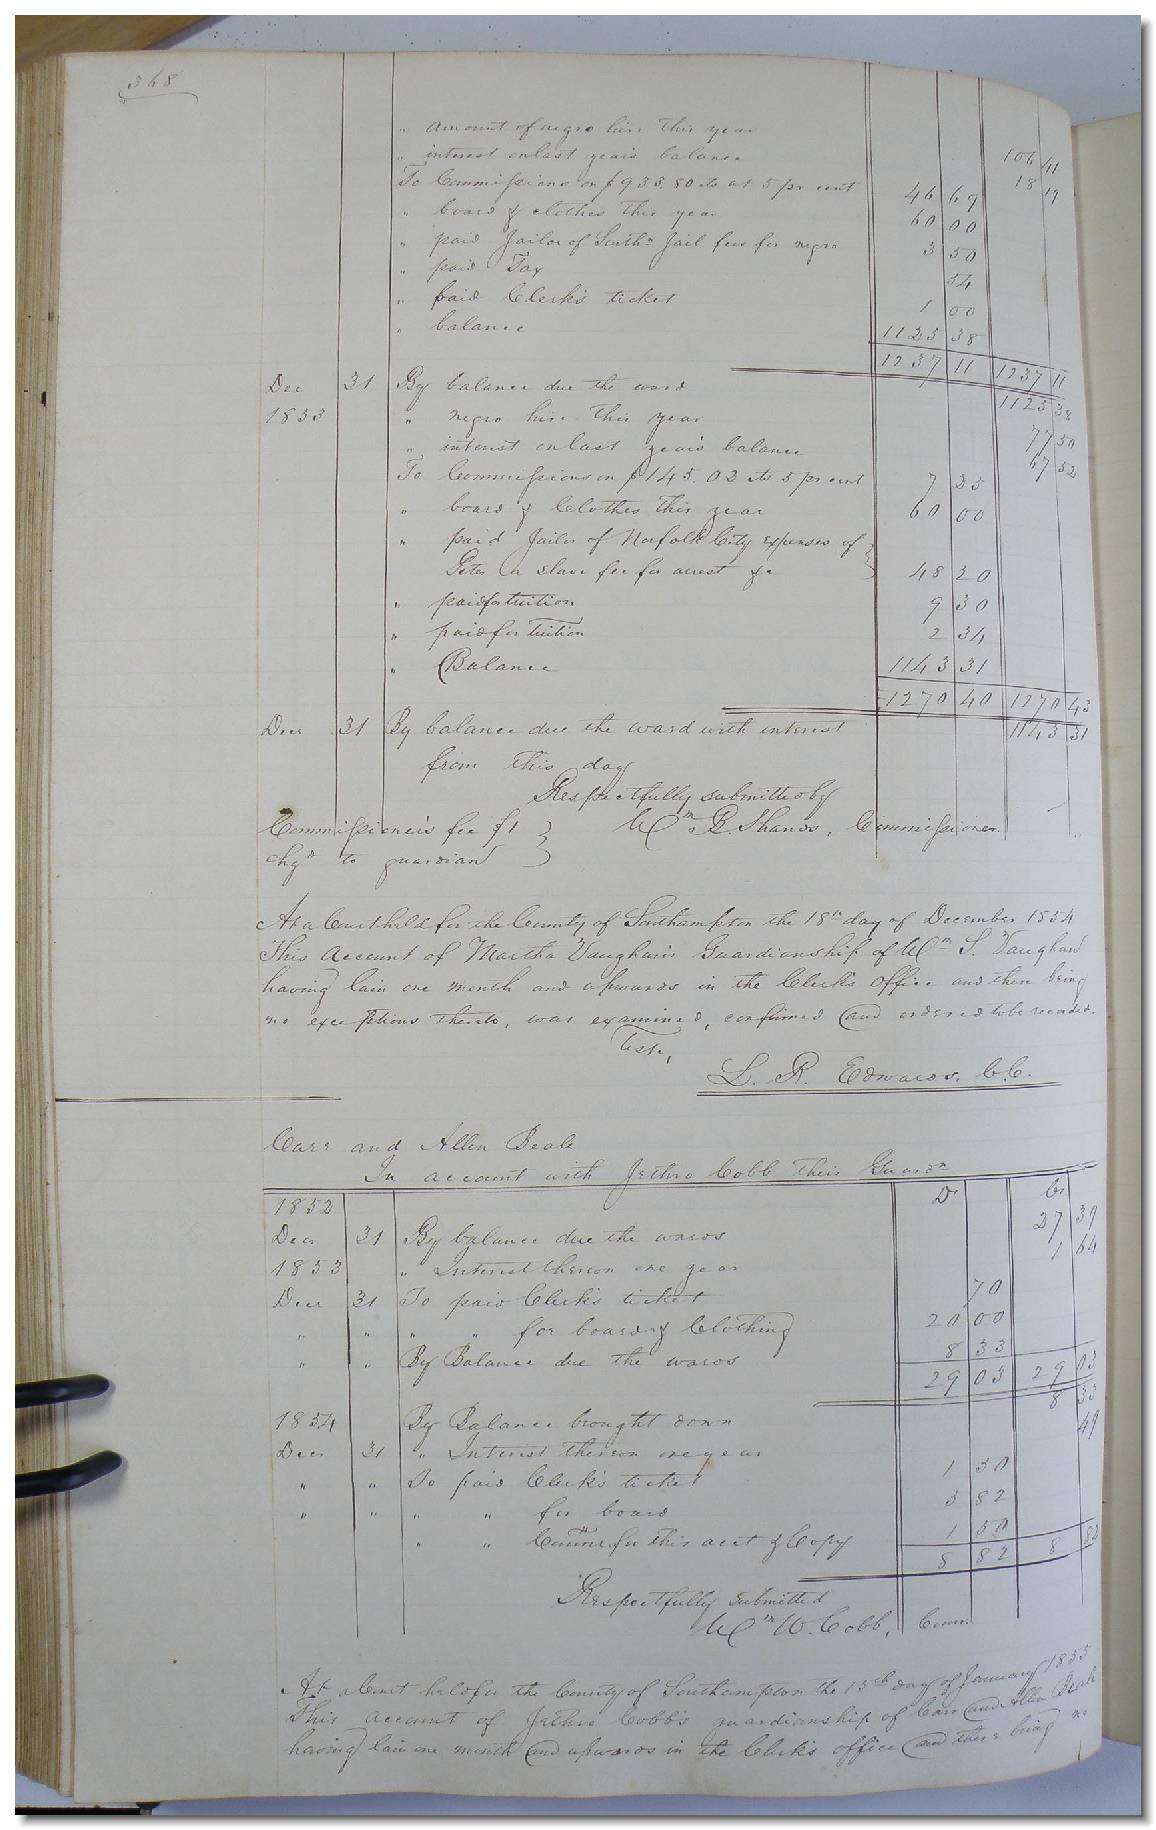 368
" amount of negro hire this year 106 41
" interest on last year's balance 18 19
To Commissions on $933.80 cts at 5 pr cent 46 69
" board & clothes this year 60 00
" paid Jailor of Southn Jail fees for negro 3 50
" paid Tax 54
" paid Clerk's ticket 1 00
" balance 1125 38
1237 11 1237 11
Dec 31 By balance due the ward 1125 38
1853 " negro hire this year 77 50
" interest on last year's balance 67 52
To Commissions on $145.02 cts 5 pr cent 7 25
" board & Clothes this year 60 00
" paid Jailor of Norfolk City expenses of
Peter a slave fee for arrest &c 48 20
" paid for tuition 9 30
" paid for Tuition 2 34
" Balance 1143 31
1270 40 1270 43
Decr 31 By balance due the ward with interest 1143 31
from this day
Respectfully submitted by
Commissioner's fee $1 Wm B. Shands, Commissioner
chgd to guardian
At a Court held for the County of Southampton the 18th day of December 1854
This Account of Martha Vaughan's Guardianship of Wm S. Vaughan
having lain one month and upwards in the Clerk's Office and there being
no exceptions thereto, was examined, confirmed and ordered to be recorded.
Teste,
L. R. Edwards, C.C.
Carr and Allen Beale
In account with Jethro Cobb their Guardn
1852 Dr Cr
Decr 31 By balance due the wards 27 39
1853 " Interest thereon one year 1 64
Decr 31 To paid Clerk's ticket 70
" " " " for board & Clothing 20 00
" " By Balance due the wards 8 33
29 03 29 03
1854 By Balance brought down 8 33
Decr 31 " Interest thereon one year 49
" " To paid Clerk's ticket 1 50
" " " " for board 5 82
" " Commr for this acct & Copy 1 50
8 82 8 82
Respectfully submitted
Wm W. Cobb, Comr.
At a Court held for the County of Southampton the 15th day of January 1855
This account of Jethro Cobb's guardianship of Carr and Allen Beale
having lain one month and upwards in the Clerk's office and there being no